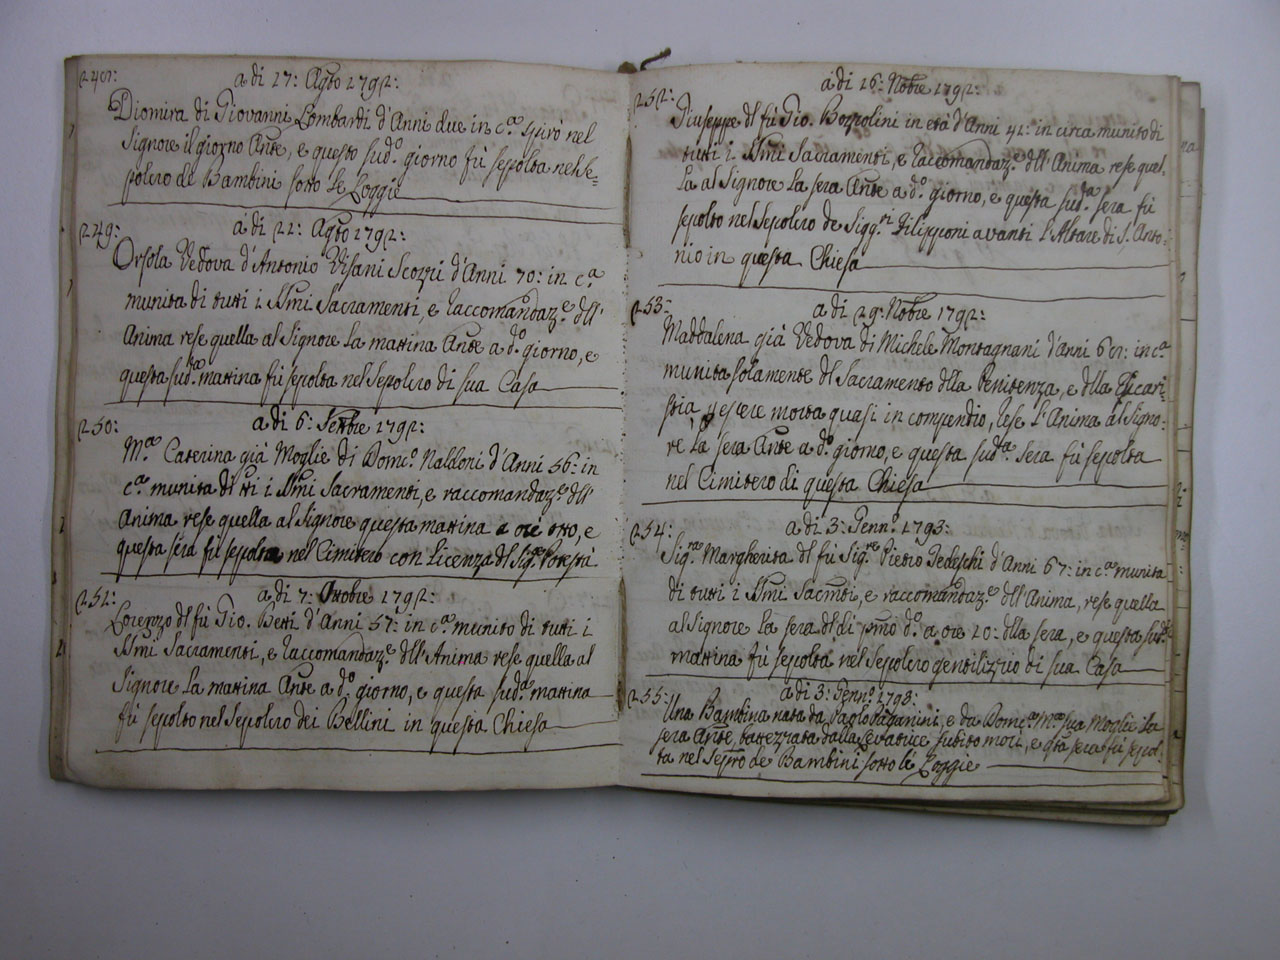 248:
a dì 17: Agto 1792:
Diomira di Giovanni Lombardi d'Anni due in c.a spirò nel
Signore il giorno Ante, e questo sud.o giorno fù sepolta nel Se=
polcro de Bambini sotto le Loggie
249:
a dì 22: Agto 1792:
Orsola Vedova d'Antonio Visani Scozzi d'Anni 70: in c.a
munita di tutti i SSmi Sacramenti, e raccomandaz.e dll'
Anima rese quella al Signore la mattina Ante a d.o giorno, e
questa sud.a mattina fù sepolta nel Sepolcro di sua Casa
250:
a dì 6: Settbre 1792:
M.a Caterina già Moglie di Dom.co Naldoni d'Anni 56: in
c.a munita di tti i SSmi Sacramenti, e raccomandaz.e dll'
Anima rese quella al Signore questa mattina a ore otto, e
questa sera fù sepolta nel Cimitero con Licenza dl Sig.re Potestà
251:
a dì 7: Ottobre 1792:
Lorenzo dl fù Gio. Betti d'Anni 57: in c.a munito di tutti i
SSmi Sacramenti, e raccomandaz.e dll'Anima rese quella al
Signore la mattina Ante a d.o giorno, e questa sud.a mattina
fù sepolto nel Sepolcro dei Bellini in questa Chiesa
252:
a dì 16: Nobre 1792:
Giuseppe dl fù Gio. Bozzolini in età d'Anni 41: in circa munito di
tutti i SSmi Sacramenti, e raccomandaz.e dll'Anima rese quel=
la al Signore la sera Ante a d.o giorno, e questa sud.ta sera fù
sepolto nel Sepolcro de Sigg.ri Filipponi avanti l'Altare di S. Anto=
nio in questa Chiesa
253:
a dì 29: Nobre 1792:
Maddalena già Vedova di Michele Montagnani d'Anni 68: in c.a
munita solamente dl Sacramento dlla Penitenza, e dlla Eucari=
stia, p essere morta quasi in compendio, rese l'Anima al Signo=
re la sera Ante a d.o giorno, e questa sud.a sera fù sepolta
nel Cimitero di questa Chiesa
254:
a dì 3: Genn.o 1793:
Sig.ra Margherita dl fù Sig.re Pietro Tedeschi d'Anni 67: in c.a munita
di tutti i SSmi Sacmti, e raccomandaz.e dll'Anima, rese quella
al Signore la sera dl dì pmo d.o a ore 10: dlla sera, e questa sud.a
mattina fù sepolta nel Sepolcro gentilizio di sua Casa
255:
a dì 3: Genn.o 1793:
Una Bambina nata da Paolo Paganini, e da Dom.ca M.a sua Moglie la
sera Ante, battezzata dalla Levatrice subito morì, e qta sera fù sepol=
ta nel Seplro de Bambini sotto le Loggie